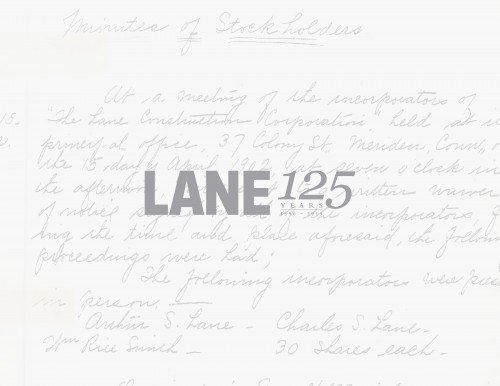 Minutes of Stockholders
At a meeting of the incorporators of
"The Lane Construction Corporation," held at
office, 37 Colony St. Meriden, Conn,
the 15 day of April 1902, at seven o'clock in
the afternoon, written waiver
LANE 125
YEARS
of notice the incorporators,
ing the time and place aforesaid, the
proceedings were had;
The following incorporators were
in person. —
Arthur S. Lane - Charles S. Lane -
Wm Rice Smith - 30 Shares each -